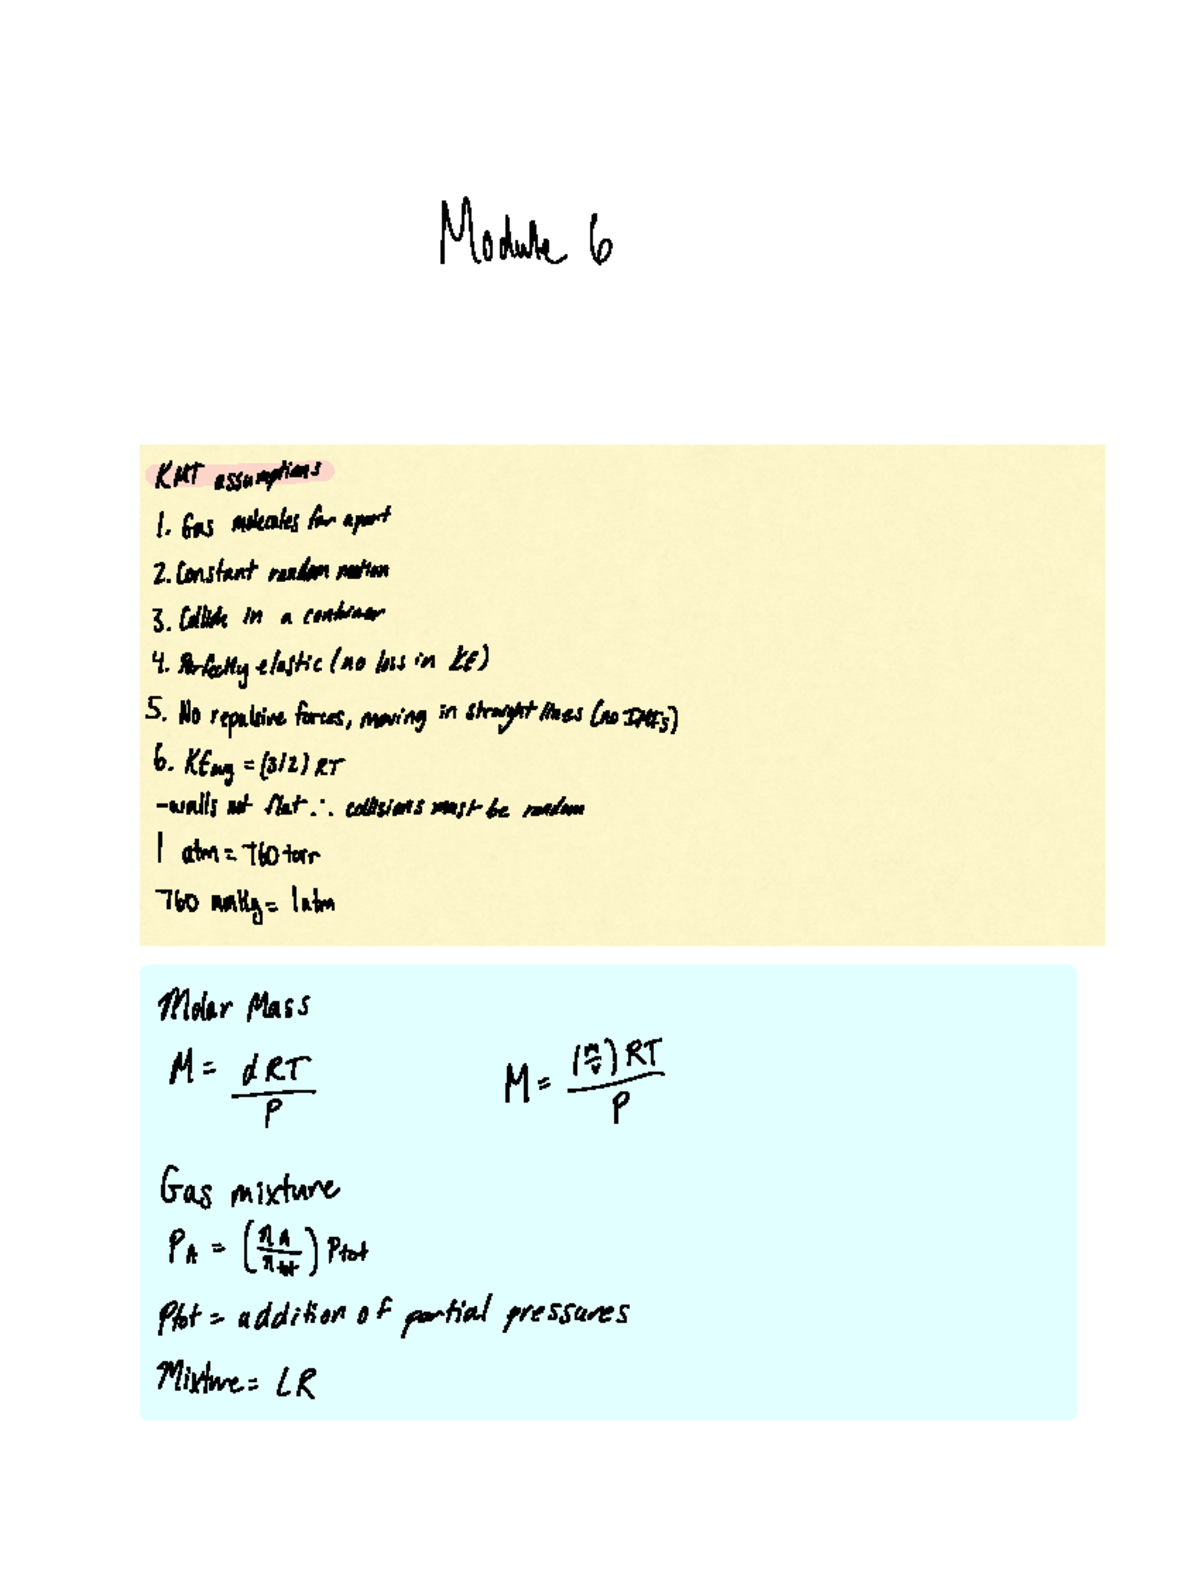 Module 6
KMT assumptions
1. Gas molecules far apart
2. Constant random motion
3. Collide in a container
4. Perfectly elastic (no loss in KE)
5. No repulsive forces, moving in straight lines (no IMFs)
6. KEavg = (3/2) RT
-walls not flat ∴ collisions must be random
1 atm = 760 torr
760 mmHg = 1 atm
Molar Mass
M = dRT / P    M = (m/v) RT / P
Gas mixture
PA = (nA / ntot) Ptot
Ptot = addition of partial pressures
Mixture = LR